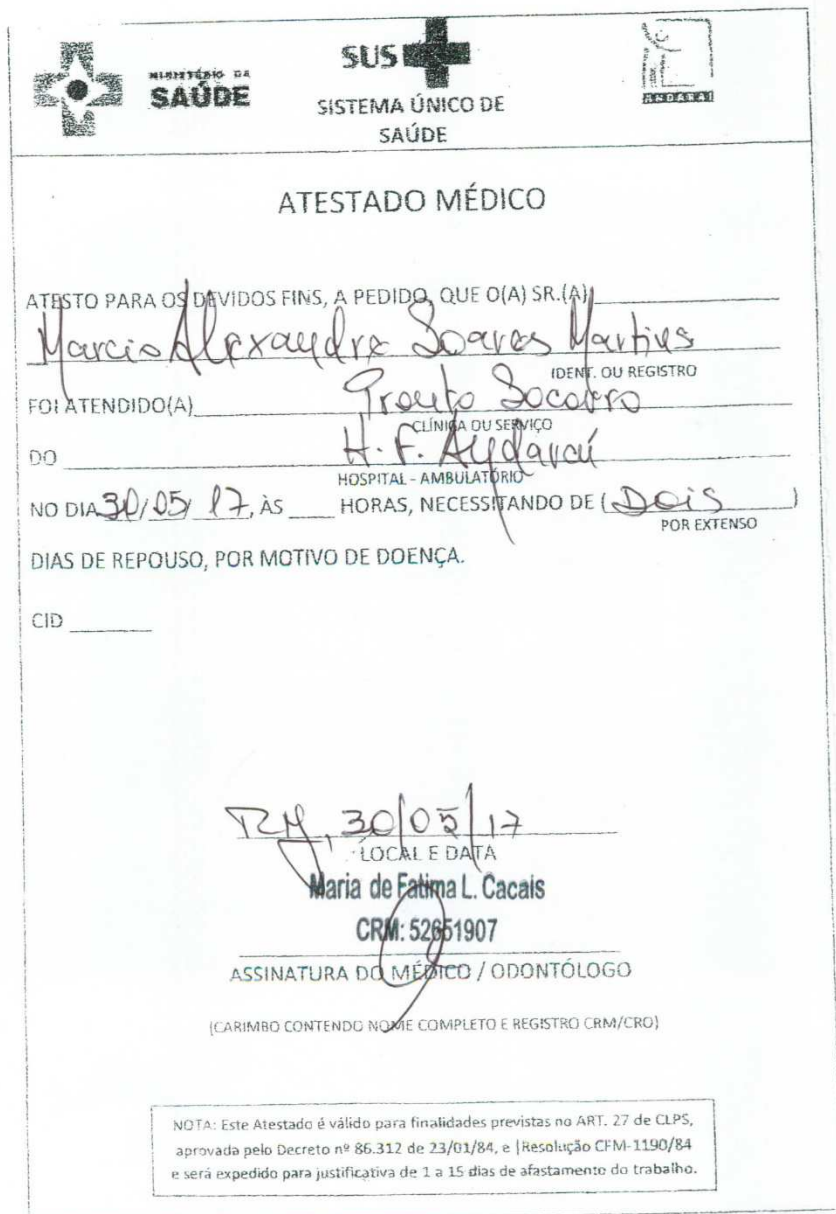 MINISTÉRIO DA
SAÚDE
SUS
SISTEMA ÚNICO DE
SAÚDE
ANDARAÍ
ATESTADO MÉDICO
ATESTO PARA OS DEVIDOS FINS, A PEDIDO, QUE O(A) SR.(A)
Marcio Alexandre Soares Martins
IDENT. OU REGISTRO
FOI ATENDIDO(A) Pronto Socorro
CLÍNICA OU SERVIÇO
DO H. F. Andaraí
HOSPITAL - AMBULATÓRIO
NO DIA 30/05/17, ÀS ____ HORAS, NECESSITANDO DE (Dois)
POR EXTENSO
DIAS DE REPOUSO, POR MOTIVO DE DOENÇA.
CID ________
RJ, 30/05/17
LOCAL E DATA
Maria de Fatima L. Cacais
CRM: 52651907
ASSINATURA DO MÉDICO / ODONTÓLOGO
(CARIMBO CONTENDO NOME COMPLETO E REGISTRO CRM/CRO)
NOTA: Este Atestado é válido para finalidades previstas no ART. 27 de CLPS,
aprovada pelo Decreto nº 86.312 de 23/01/84, e |Resolução CFM-1190/84
e será expedido para justificativa de 1 a 15 dias de afastamento do trabalho.